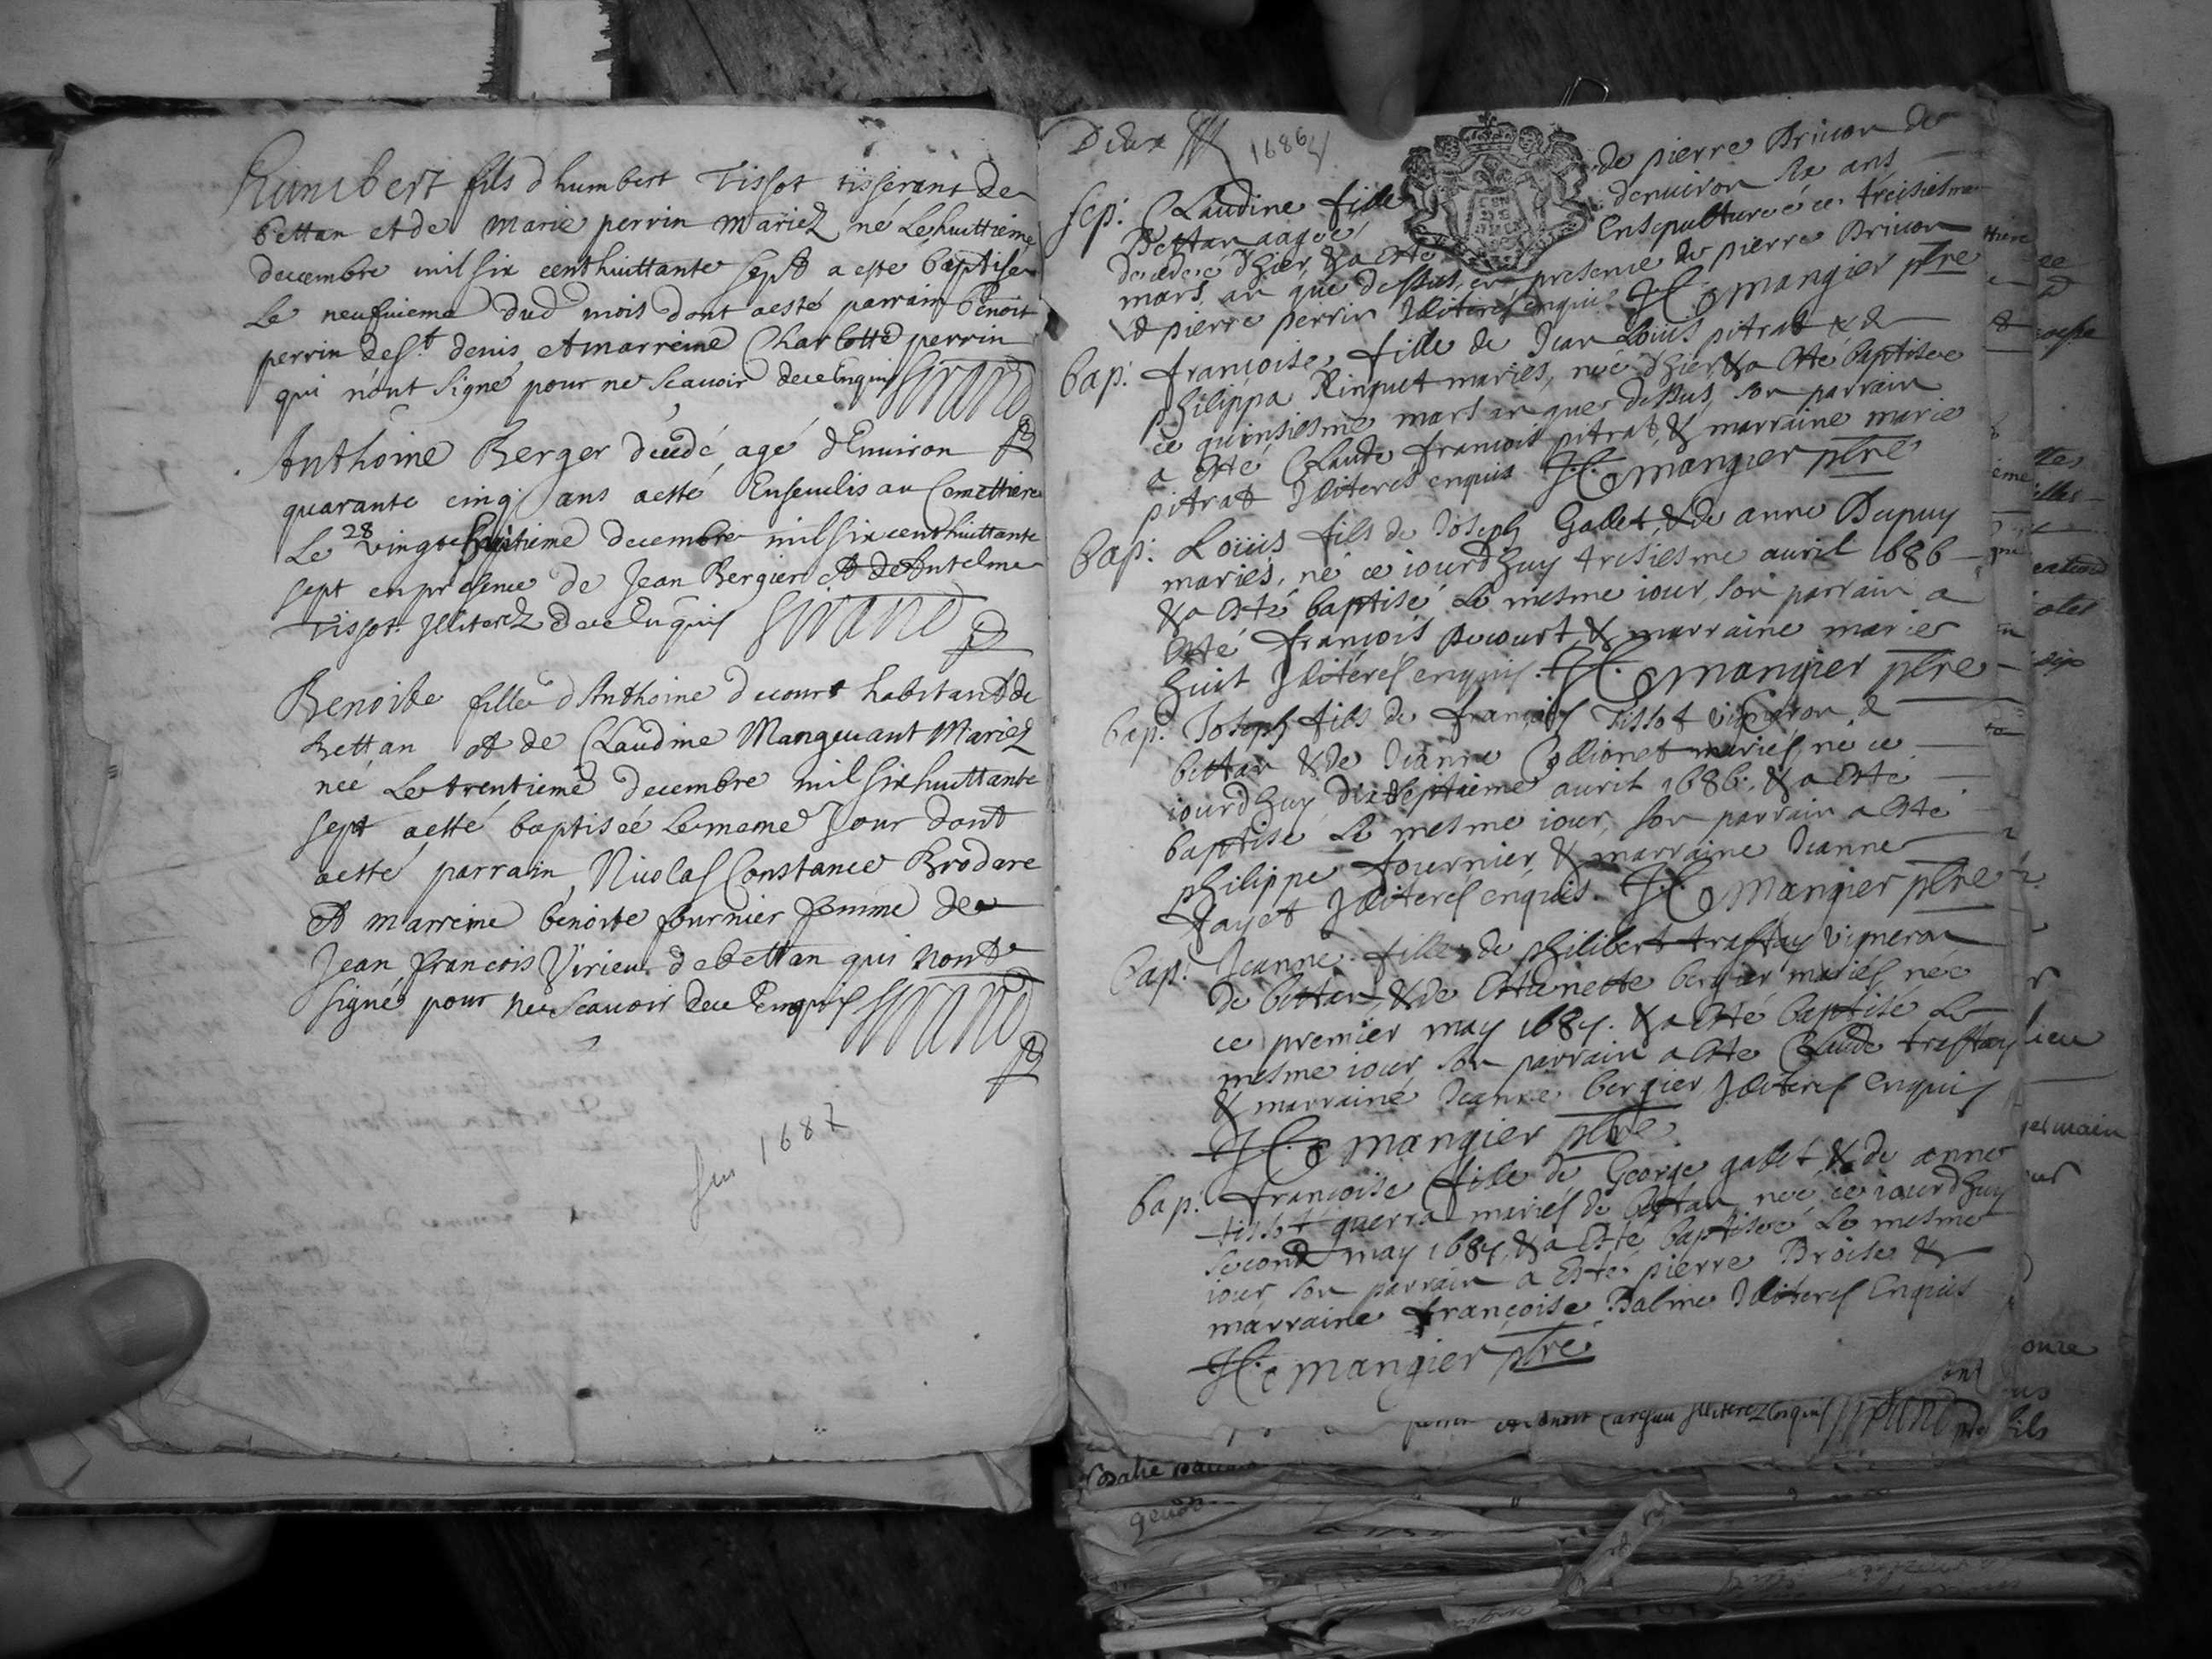 Humbert fils d humbert Tissot tisserant de
bettan et de marie perrin mariez né Le huittieme
decembre mil six cent huittante sept a esté baptisé
Le neufuieme dud mois dont aesté parrain Benoit
perrin de st denis et marreine Charlotte perrin
qui nont signé pour ne scauoir dece Enquis Sirand
Anthoine Berger decedé agé dEnuiron
quarante cinq ans aesté Enseuelis au Cemettiere
28
Le vingt huittieme decembre mil six cent huittante
sept en presence de Jean Bergier et de Antelme
Tissot Illiterez dece Enquis Sirand
Benoite fille dAnthoine ducourt habitant de
Bettan et de Claudine Mangeuant Mariez
neé Le trentieme decembre mil six huittante
sept aesté baptiseé Le meme Jour dont
aesté parrain Nicolas Constance Brodare
et marreine benoite fournier femme de
Jean francois Virieu de bettan qui nont
signé pour ne Scauoir dece Enquis Sirand
1687
Deux 1686
sep: Claudine fille de pierre Briuon de
Bettan aageé denuiron six ans
decedeé dhier & a esté Ensepultureé ce treisiesme
mars an que dessus en presence de pierre Briuon
& pierre perrin Illiterés enquis mangier ptre
bap: francoise fille de Jean Louis pitrat & de
philippa Rinquet mariés, neé dhier & a esté baptiseé
ce quinsiesme mars an que dessus, son parrain
a esté Claude francois pitrat & marraine marie
pitrat Illiterés enquis mangier ptre
bap: Louis fils de Joseph Gallet & de anne Dupuy
mariés, né ce iourdhuy tresiesme auril 1686
& a esté baptisé Le mesme iour, son parrain a
esté francois Ducourt & marraine marie
huit Illiteres enquis. mangier ptre
bap: Joseph fils de francois Tissot vigneron de
bettan & de Jeanne mariés né ce
iourdhuy dixseptieme auril 1686. & a esté
baptisé Le mesme iour, son parrain a esté
philippe fournier & marraine Jeanne
fayet Illiteres enquis. mangier ptre
bap: Jeanne fille de philibert traffay vigneron
de bettan, & de Estienette bergier mariés neé
ce premier may 1684. & a esté baptisé Le
mesme iour son parrain a esté Claude traffay
& marraine Jeanne bergier Illiteres Enquis
mangier ptre
bap: francoise fille de George gallet & de anne
tissot guerra mariés de bettan neé ce iourdhuy
second may 1684, & a esté baptiseé Le mesme
iour son parrain a esté pierre Broise &
marraine francoise Balme Illiteres Enquis
mangier ptre
Illiterez Enquis Sirand